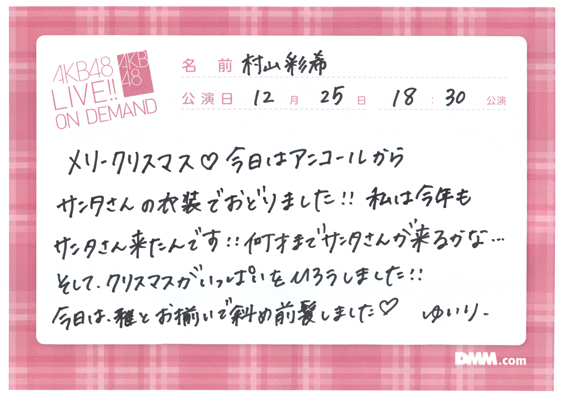 AKB48
LIVE!!
ON DEMAND
AKB
48
名前 村山彩希
公演日 12月 25日 18:30 公演
メリークリスマス♡ 今日はアンコールから
サンタさんの衣装でおどりました!! 私は今年も
サンタさん来たんです!! 何才までサンタさんが来るかな…
そして、クリスマスがいっぱいを
しました!!
今日は、稚とお揃いで斜め前髪しました♡ ゆいりー
DMM.com